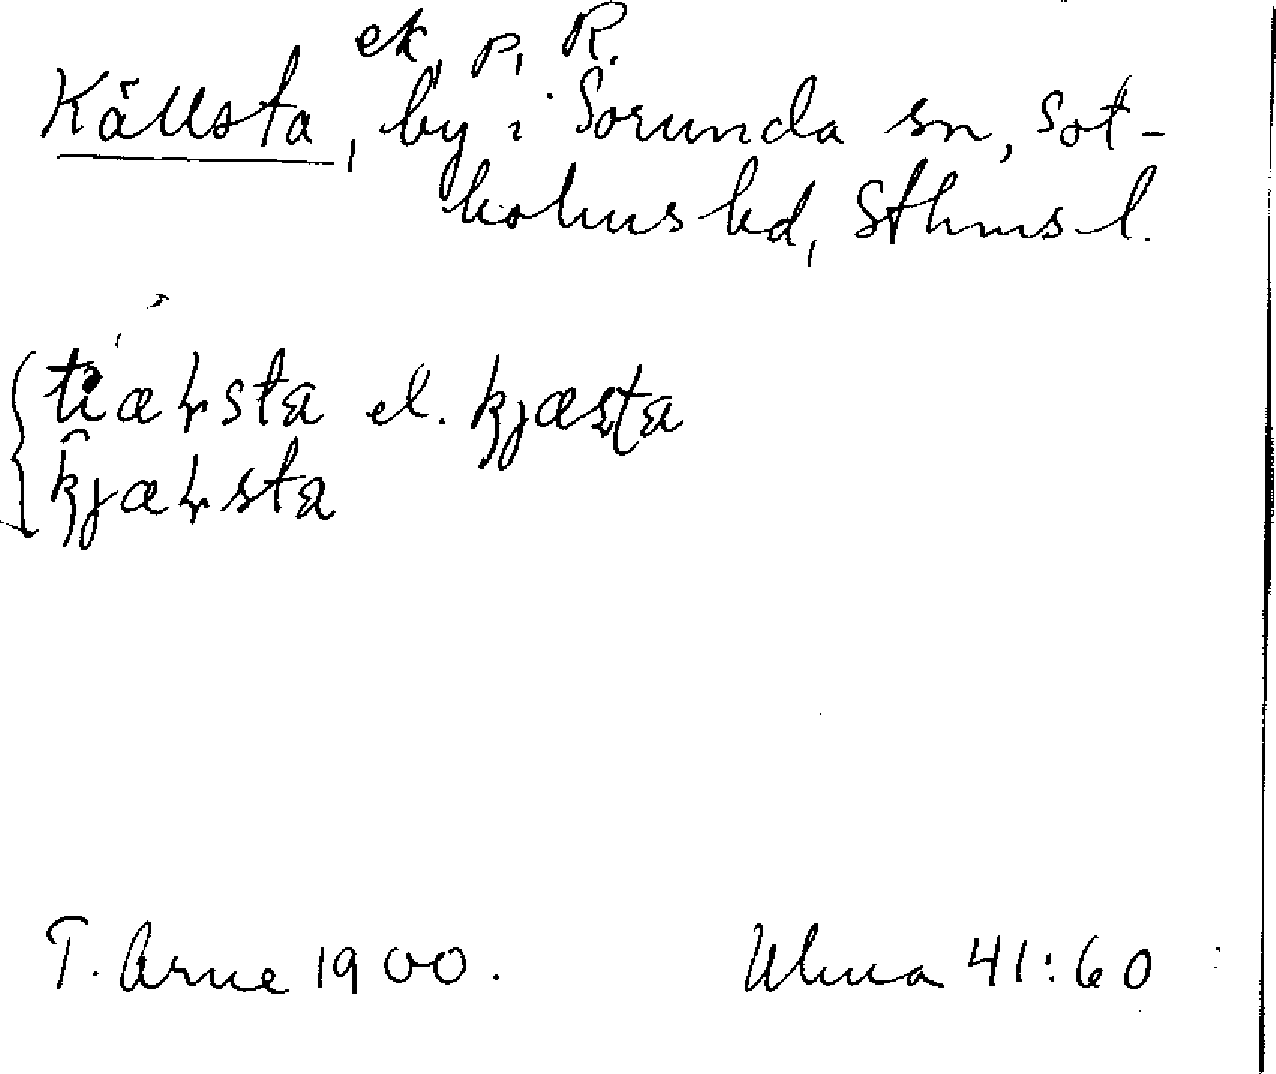 ek, p. R.
Källsta, by i Sorunda sn, Sot-
holms hd, Sthms l.
el. kjæsta
kjæłsta
T. Arne 1900. Ulma 41:60